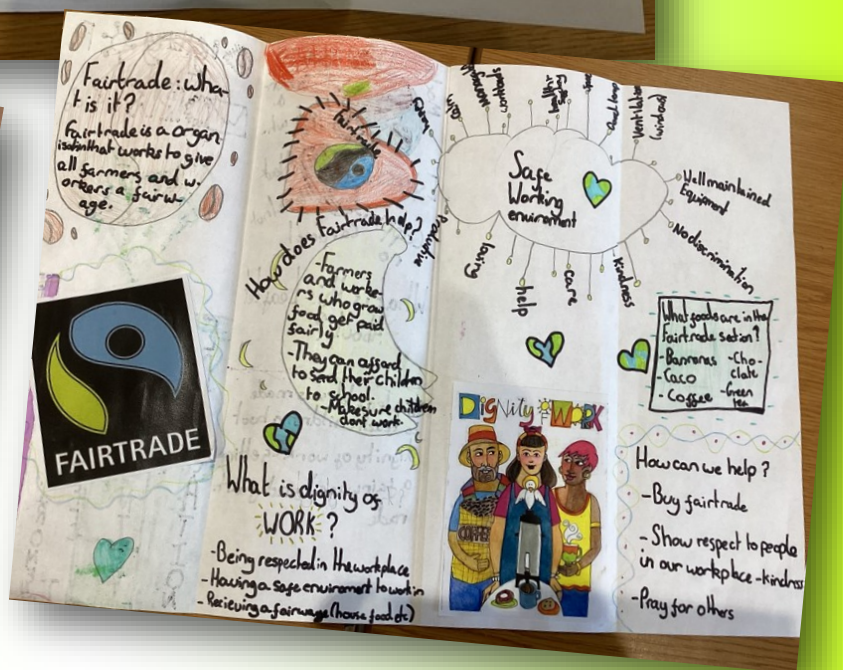 Fairtrade: wha-
t is it?
Fairtrade is a organ
isation that works to give
all farmers and w-
orkers a fair w-
age.
FAIRTRADE
Fairtrade
How does Fairtrade help?
- Farmers
and worke-
rs who grow
food get paid
fairly.
- They can afford
to send their children
to school.
- Make sure children
dont work.
What is dignity of
WORK?
- Being respected in the workplace
- Having a safe enviroment to work in
- Recieving a fair wage (house food etc)
Safe
Working
enviroment
healthy
Ventilation
(windows)
Well maintained
Equipment
No discrimination
kindness
care
help
loving
Productive
Dignity of WORK
COFFEE
What foods are in the
Fairtrade section?
- Bannanas
- Caco
- Coffee
- Cho-
clate
- Green
tea
How can we help?
- Buy fairtrade
- Show respect to people
in our workplace - kindness
- Pray for others